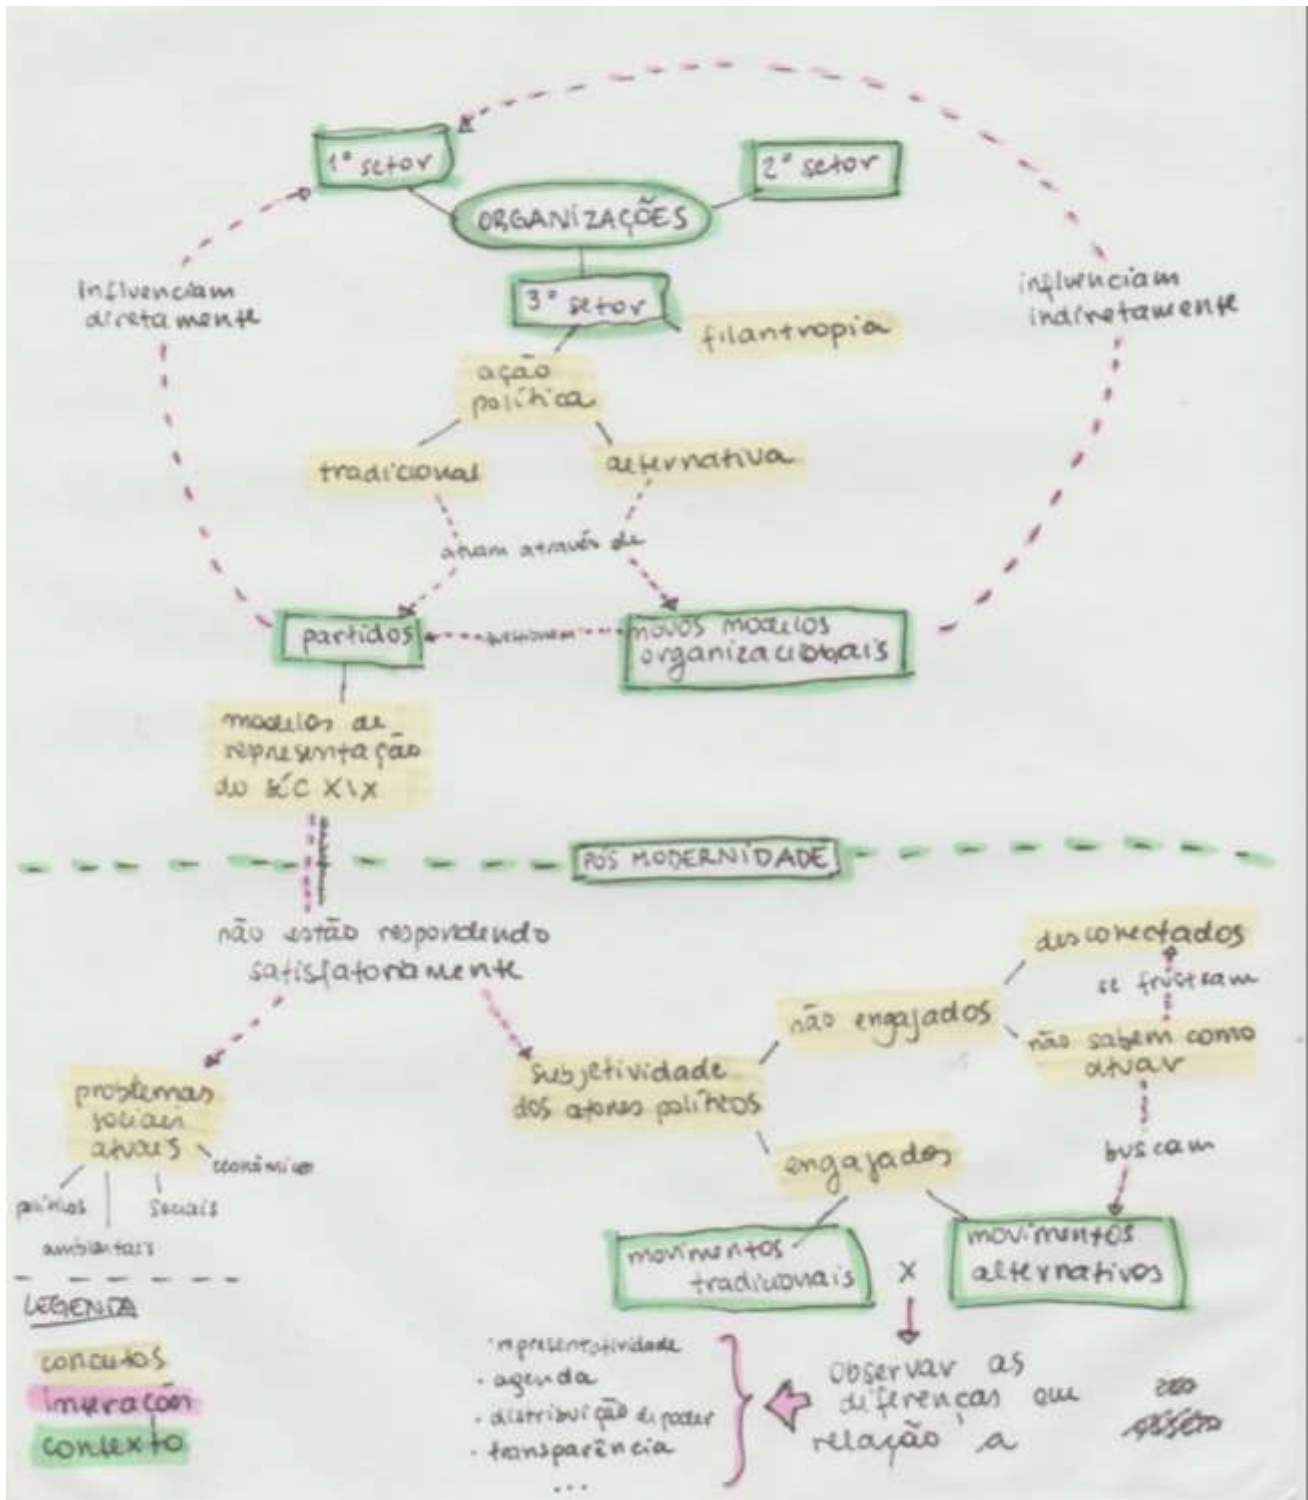 1º setor
2º setor
ORGANIZAÇÕES
3º setor
filantropia
Influenciam
diretamente
influenciam
indiretamente
ação
política
tradicional
alternativa
atuam através de
partidos
questionam
novos modelos
organizacionais
modelos de
representação
do séc XIX
PÓS MODERNIDADE
não estão respondendo
satisfatoriamente
desconectados
se frustram
não engajados
não sabem como
atuar
subjetividade
dos atores políticos
problemas
sociais
atuais
econômicos
políticos
sociais
ambientais
engajados
buscam
movimentos
tradicionais
X
movimentos
alternativos
LEGENDA
conceitos
interação
contexto
representatividade
• agenda
• distribuição de poder
• transparência
...
observar as
diferenças em
relação à